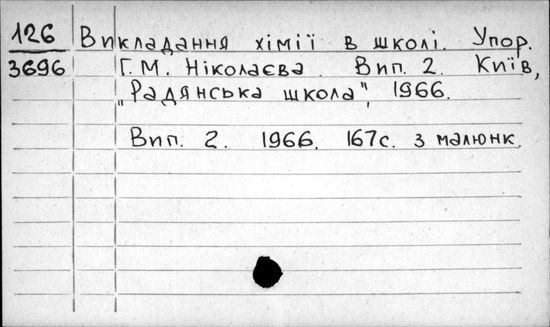 126 Викладання хімії в школі. Упор.
3696 Г.М. Ніколаєва. Вип. 2. Київ,
„Радянська школа", 1966.
Вип. 2. 1966. 167с. з малюнк.